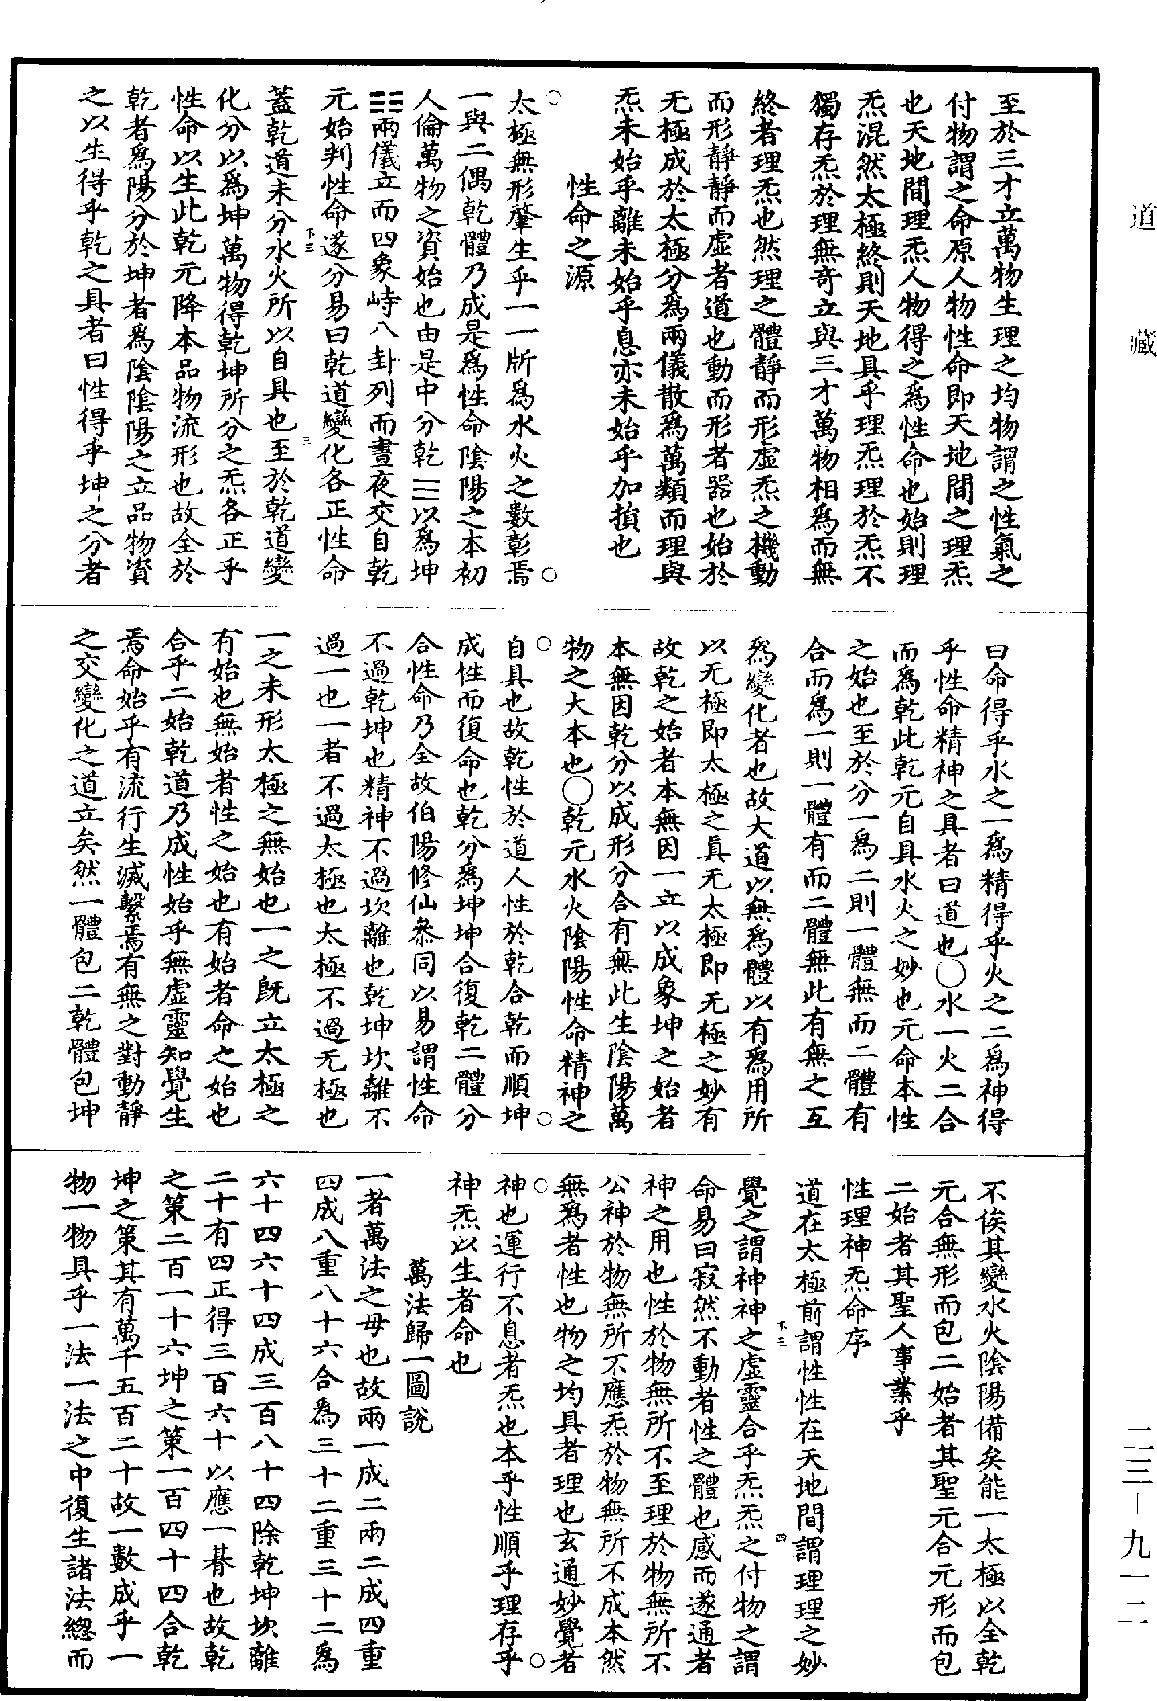 道藏
至於三才立萬物生理之均物謂之性氣之
付物謂之命原人物性命即天地間之理炁
也天地間理炁人物得之為性命也始則理
炁混然太極終則天地具乎理炁理於炁不
獨存炁於理無奇立與三才萬物相為而無
終者理炁也然理之體靜而形虛炁之機動
而形靜靜而虛者道也動而形者器也始於
无極成於太極分為兩儀散為萬類而理與
炁未始乎離未始乎息亦未始乎加損也
性命之源
太極無形肇生乎一一判為水火之數彰焉
一與二偶乾體乃成是為性命陰陽之本初
人倫萬物之資始也由是中分乾☰以為坤
☷兩儀立而四象峙八卦列而晝夜交自乾
元始判性命遂分易曰乾道變化各正性命
下三
三
蓋乾道未分水火所以自具也至於乾道變
化分以為坤萬物得乾坤所分之炁各正乎
性命以生此乾元降本品物流形也故全於
乾者為陽分於坤者為陰陰陽之立品物資
之以生得乎乾之具者曰性得乎坤之分者
曰命得乎水之一為精得乎火之二為神得
乎性命精神之具者曰道也○水一火二合
而為乾此乾元自具水火之妙也元命本性
之始也至於分一為二則一體無而二體有
合而為一則一體有而二體無此有無之互
為變化者也故大道以無為體以有為用所
以无極即太極之真无太極即无極之妙有
故乾之始者本無因一立以成象坤之始者
本無因乾分以成形分合有無此生陰陽萬
物之大本也○乾元水火陰陽性命精神之
自具也故乾性於道人性於乾合乾而順坤
成性而復命也乾分為坤坤合復乾二體分
合性命乃全故伯陽修仙參同以易謂性命
不過乾坤也精神不過坎離也乾坤坎離不
過一也一者不過太極也太極不過无極也
一之未形太極之無始也一之既立太極之
有始也無始者性之始也有始者命之始也
合乎二始乾道乃成性始乎無虛靈知覺生
焉命始乎有流行生滅繫焉有無之對動靜
之交變化之道立矣然一體包二乾體包坤
不俟其變水火陰陽備矣能一太極以全乾
元合無形而包二始者其聖元合元形而包
二始者其聖人事業乎
性理神炁命序
道在太極前謂性性在天地間謂理理之妙
下三
四
覺之謂神神之虛靈合乎炁炁之付物之謂
命易曰寂然不動者性之體也感而遂通者
神之用也性於物無所不至理於物無所不
公神於物無所不應炁於物無所不成本然
無為者性也物之均具者理也玄通妙覺者
神也運行不息者炁也本乎性順乎理存乎
神炁以生者命也
萬法歸一圖說
一者萬法之母也故兩一成二兩二成四重
四成八重八十六合為三十二重三十二為
六十四六十四成三百八十四除乾坤坎離
二十有四正得三百六十以應一朞也故乾
之策二百一十六坤之策一百四十四合乾
坤之策其有萬千五百二十故一數成乎一
物一物具乎一法一法之中復生諸法總而
二三—九一二